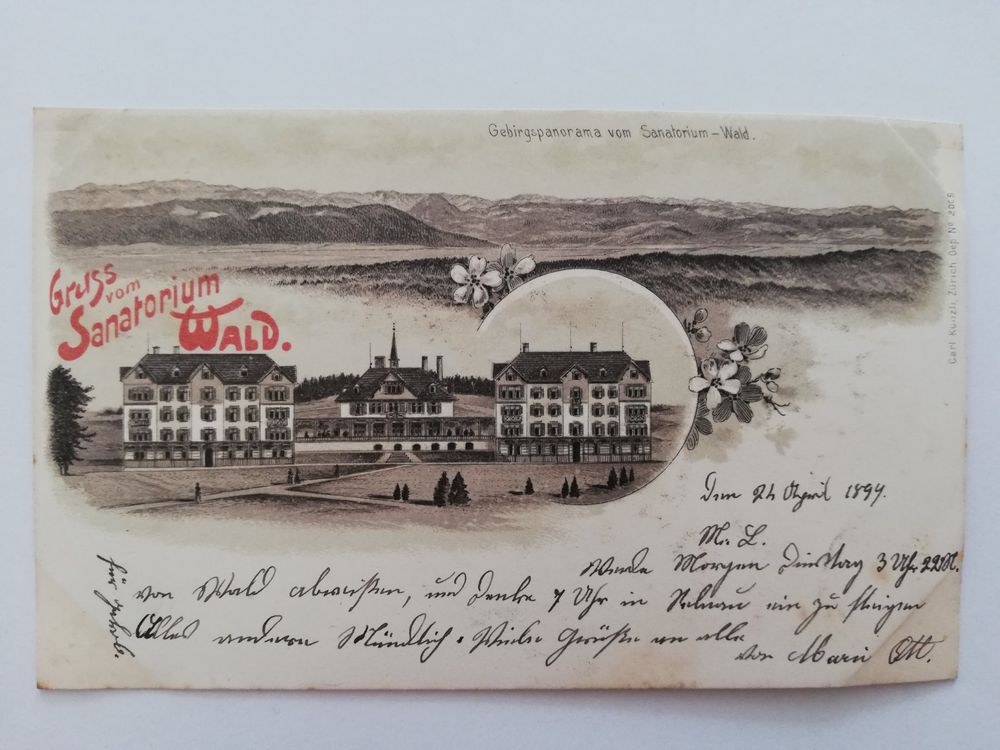 Gebirgspanorama vom Sanatorium-Wald.
Gruss
vom
Sanatorium
WALD.
Carl Künzli, Zürich Dep. No 2069
Den 24 April 1899.
M. L.
Werde Morgen Dinstag 3 Uhr 22 M.
von Wald abreißen, und Denke 7 Uhr in Selnau ein zu steigen
Alles andere Mündlich. Viele Grüße an alle
von Marie Ott.
für